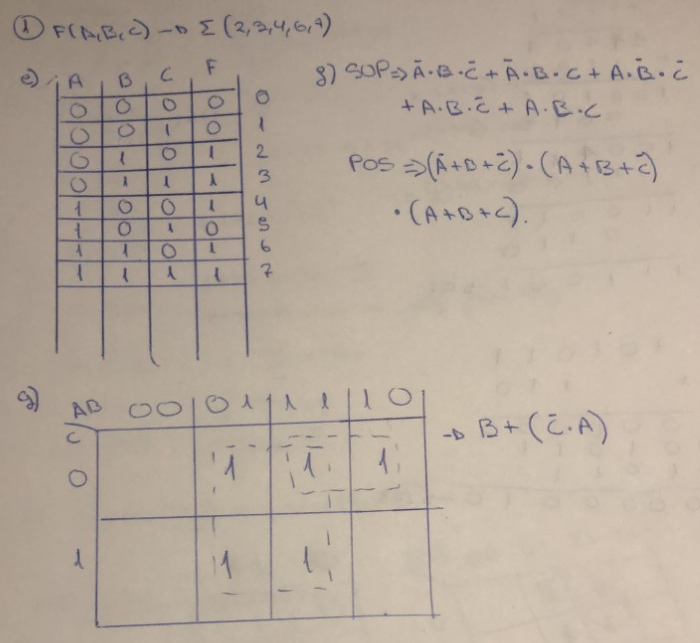 ① F(A,B,C) → Σ (2,3,4,6,7)
e) A B C F
0 0 0 0 0
0 0 1 0 1
0 1 0 1 2
0 1 1 1 3
1 0 0 1 4
1 0 1 0 5
1 1 0 1 6
1 1 1 1 7
g) SOP => Ā·B·C̄ + Ā·B·C + A·B̄·C̄
+ A·B·C̄ + A·B·C
POS => (Ā+B+C̄) · (A+B+C̄)
· (A+B+C).
g) AB 00 01 11 10
C
0 1 1 1
1 1 1
→ B + (C̄·A)